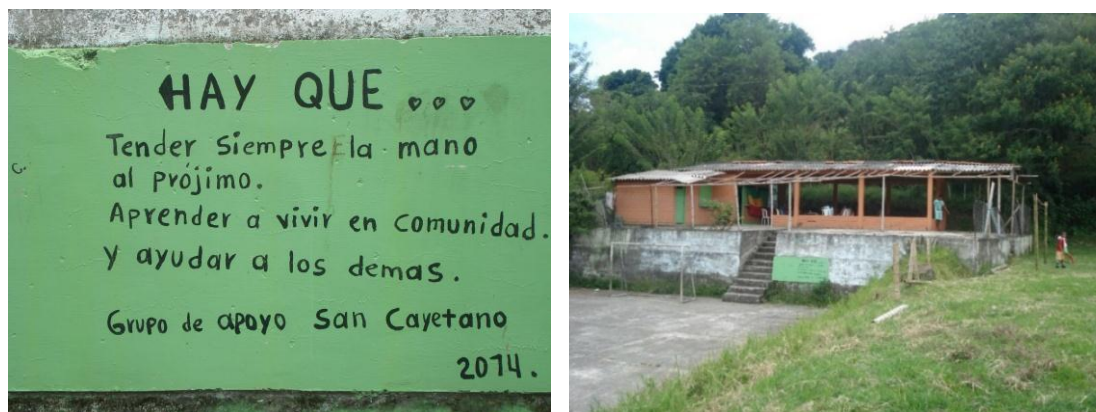 HAY QUE...
Tender Siempre la mano
al prójimo.
Aprender a vivir en comunidad.
y ayudar a los demas.
Grupo de apoyo San Cayetano
2014.